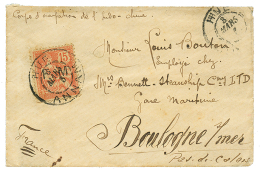 Corps d'occupation de l'Indo-chine.
Monsieur Louis Bouton
Employé chez
Mrs Bennett-Steamship Cny LTD
Gare Maritime
Boulogne s/mer
Pas-de-Calais
France
15
MARS